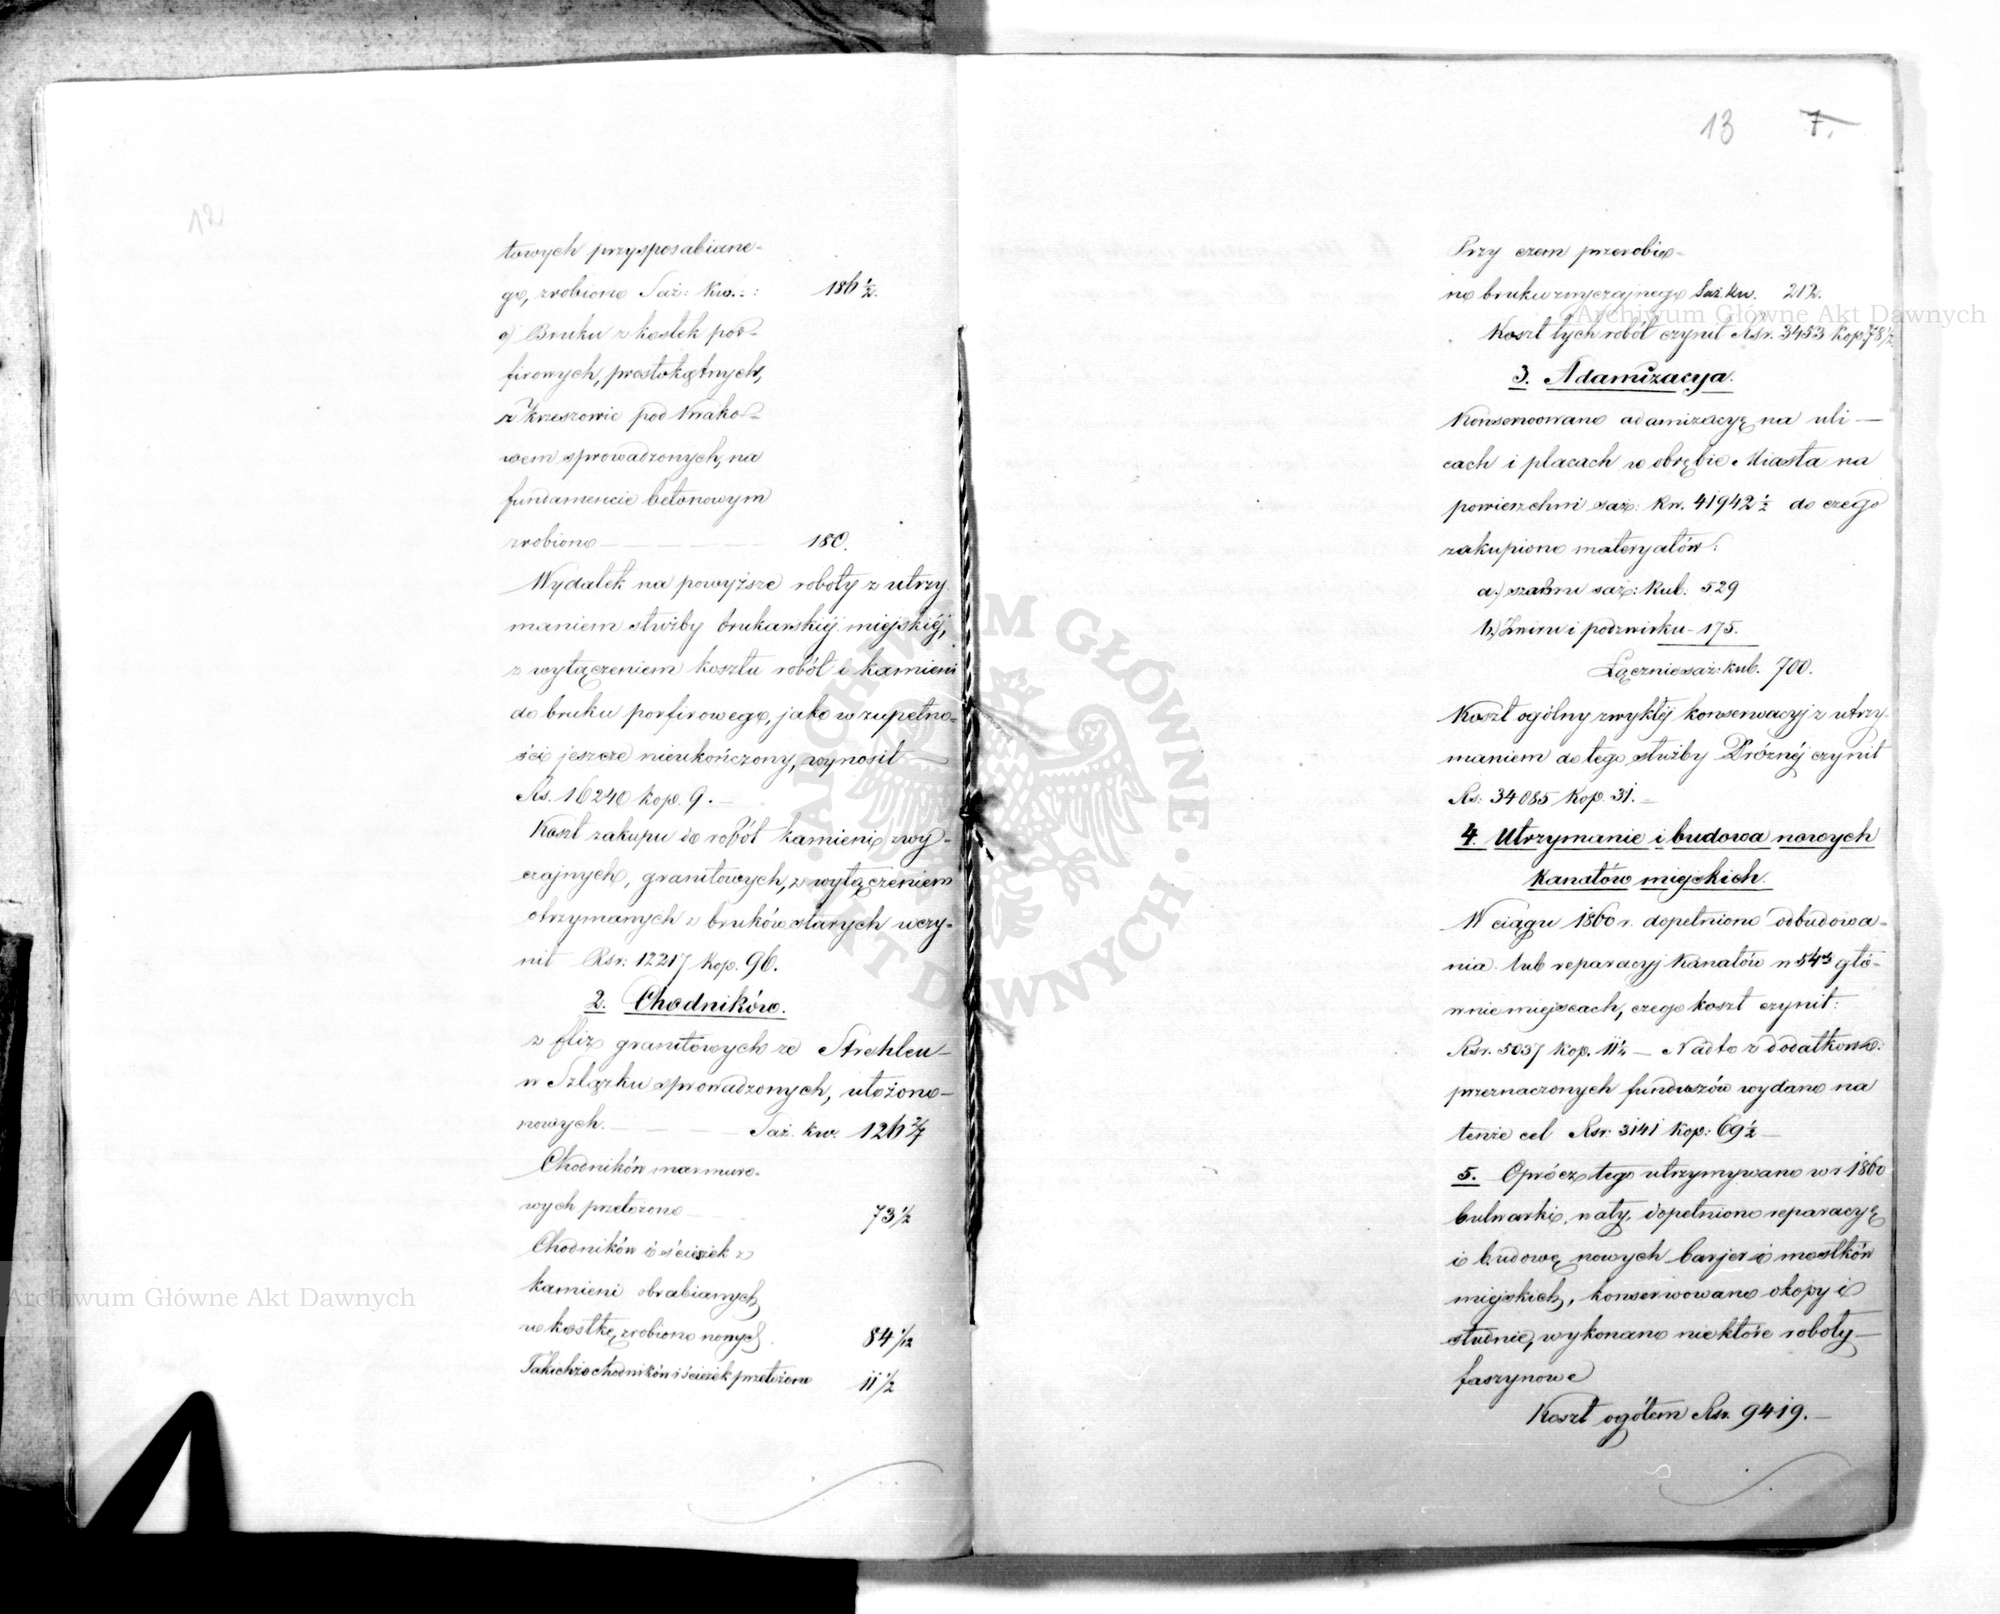 12
towych przysposabiane-
go, zrobiono Saż: kw.: 186 1/2.
c) Bruku z kostek por-
firowych, prostokątnych,
z Krzeszowic pod Krako-
wem sprowadzonych, na
fundamencie betonowym
zrobiono 180.
Wydatek na powyższe roboty z utrzy
maniem służby brukarskiéj miejskiéj,
z wyłączeniem kosztu robót i kamieni
do bruku porfirowego, jako w zupełno-
ści jeszcze nieukończony, wynosił
Rs. 16240 kop. 9.
Koszt zakupu do robót kamieni zwy-
czajnych, granitowych, z wyłączeniem
otrzymanych z bruków starych uczy-
nił Rsr: 12217 kop. 96.
2. Chodników.
z fliz granitowych ze Strehlen
w Szląsku sprowadzonych, ułożono
nowych. Saż. kw. 126 2/7
Chodników marmuro-
wych przełożono 73 1/2
Chodników i ścieżek z
kamieni obrabianych
w kostkę, zrobiono nowych 84 1/12
Takichże chodników i ścieżek przełożono 11 1/2
13 7.
Przy czem przerobio-
no bruku zwyczajnego Saż. kw. 212.
Koszt tych robót czynił Rsr. 3453 kop. 78 1/2
3. Adamizacya.
Konserwowano adamizacyę na uli-
cach i placach w obrębie Miasta na
powierzchni saż: kw. 41942 1/2 do czego
zakupiono materyałów:
a.) szabru saż: kub. 529
b.) Żwiru i podzwirku - 175.
Łącznie saż: kub. 700.
Koszt ogólny zwykłéj konserwacyj z utrzy-
maniem do tego służby Dróżnéj czynił
Rs: 34085 kop. 31.
4. Utrzymanie i budowa nowych
Kanałów miejskich.
W ciągu 1860 r. dopełniono odbudowa-
nia lub reparacyj Kanałów w 543 głó-
wnie miejscach, czego koszt czynił:
Rsr. 5037 kop. 11 1/2 - Nadto z dodatkowo:
przeznaczonych funduszów wydano na
tenże cel Rsr. 3141 kop: 69 1/2
5. Oprócz tego utrzymywano w r 1860
bulwarki, wały, dopełniono reparacyę
i budowę nowych barjer i mostków
miejskich, konserwowano okopy i
studnie, wykonano niektóre roboty
faszynowe
Koszt ogółem Rsr. 9419.
Archiwum Główne Akt Dawnych
Archiwum Główne Akt Dawnych
ARCHIWUM GŁÓWNE AKT DAWNYCH